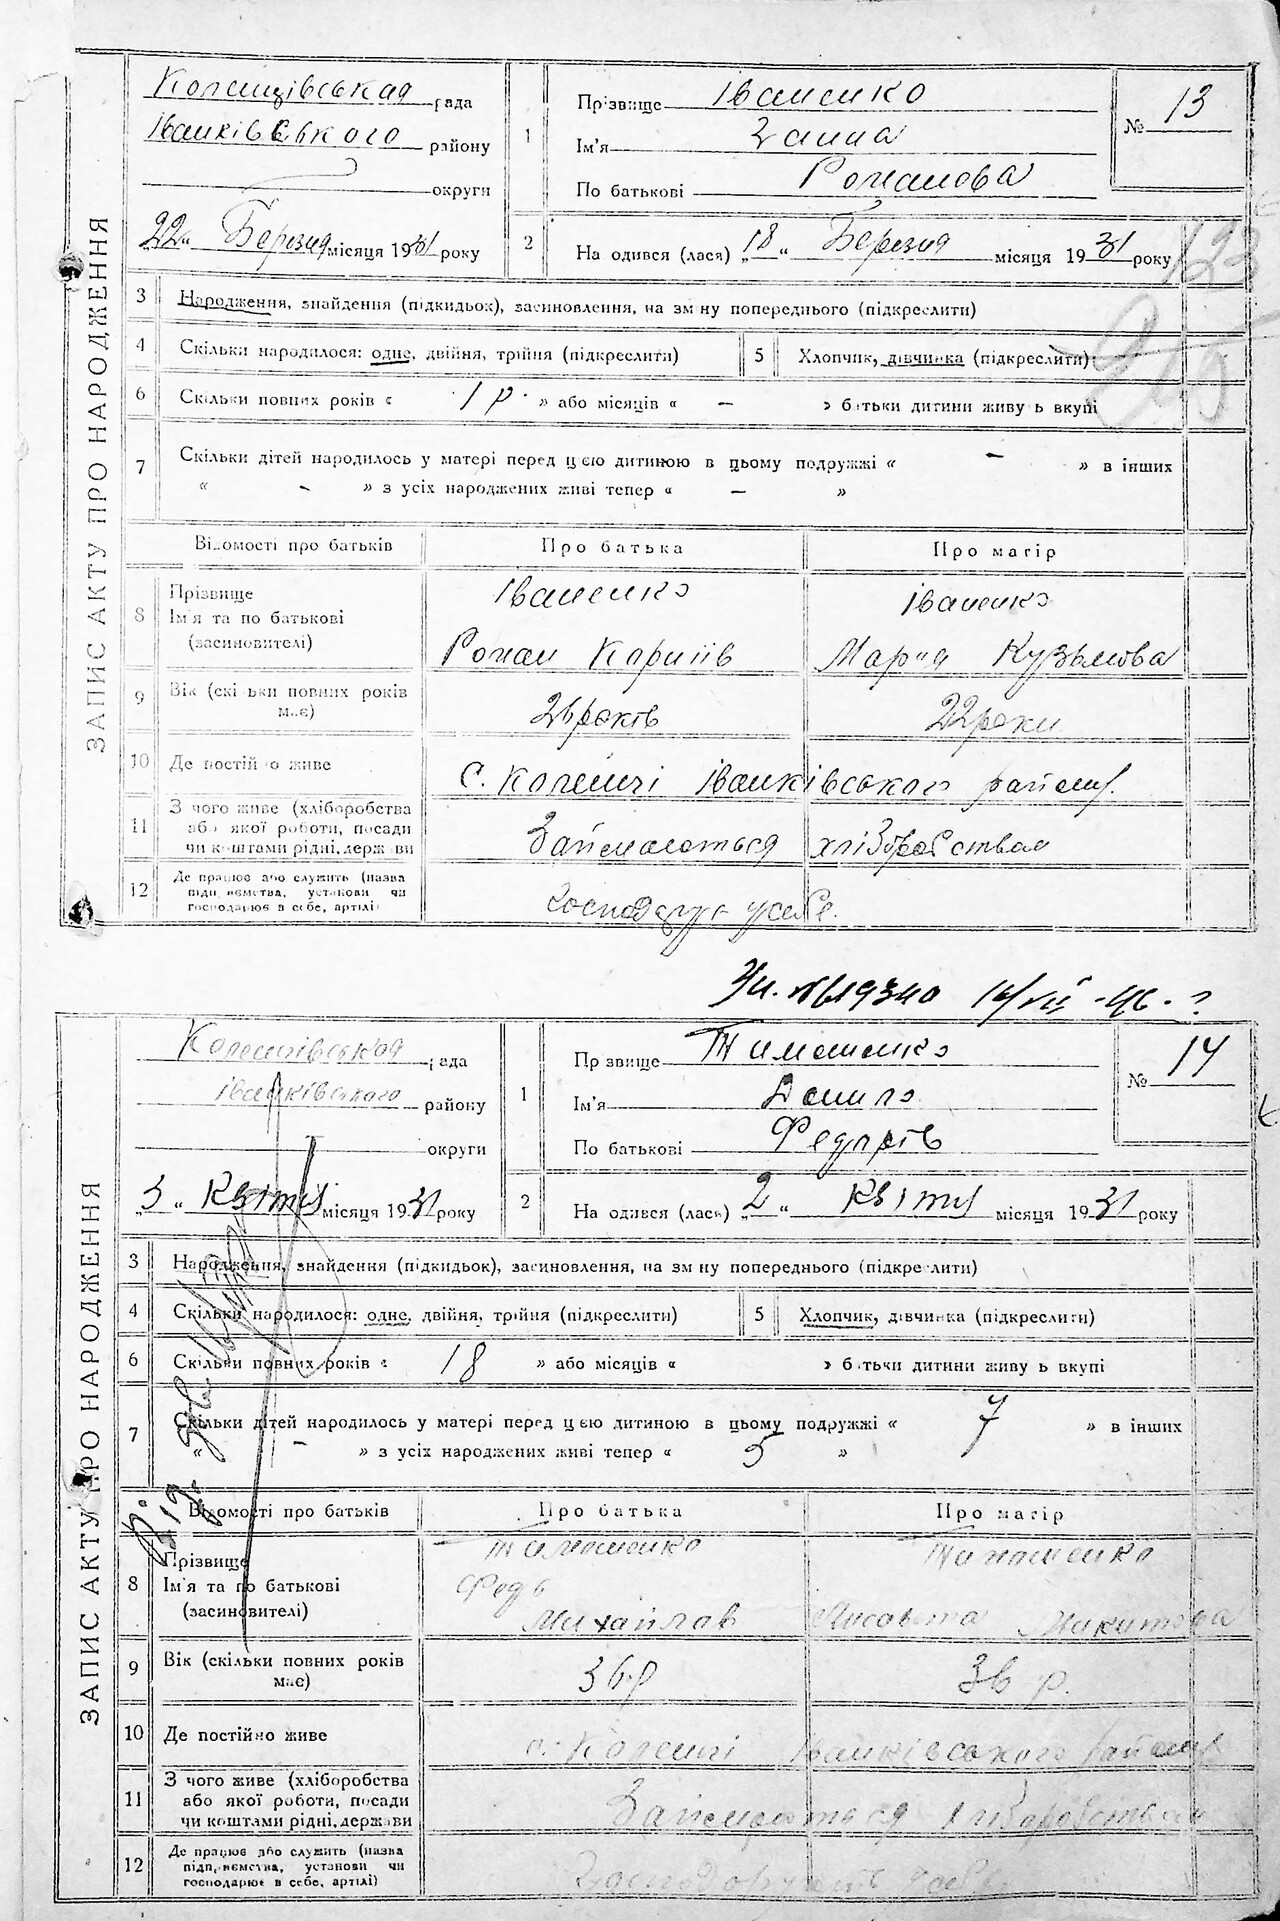 ЗАПИС АКТУ ПРО НАРОДЖЕННЯ
Коленцівская рада
Іванківського району
округи
„22“ Березня місяця 1931 року
1
Прізвище Іваненко
Ім'я Ганна
По батькові Романова
№ 13
2
На одився (лася) „18“ Березня місяця 1931 року
3 Народження, знайдення (підкидьок), засиновлення, на зм ну попереднього (підкреслити)
4 Скільки народилося: одне, двійня, трійня (підкреслити)
5 Хлопчик, дівчинка (підкреслити)
6 Скільки повних років « 1 р. » або місяців « – » батьки дитини живу ь вкупі
7 Скільки дітей народилось у матері перед цією дитиною в цьому подружжі « – » в інших
« – » з усіх народжених живі тепер « – »
Відомості про батьків Про батька Про матір
8 Прізвище Іваненко Іваненко
Ім'я та по батькові
(засиновителі) Роман Марія Кузьмова
9 Вік (скільки повних років має) 26 років 22 роки
10 Де постійно живе с. Коленці Іванківського району.
11 З чого живе (хліборобства
або якої роботи, посади
чи коштами рідні, держави Займаються хліборобством
12 Де працює або служить (назва
підприємства, установи чи
господарює в себе, артілі) Господарує у себе.
ЗАПИС АКТУ ПРО НАРОДЖЕННЯ
Коленцівская рада
Іванківського району
округи
„3“ Квітня місяця 1931 року
1
Пр звище Тимошенко
Ім'я Данило
По батькові Федорів
№ 14
2
На одився (лася) „2“ Квітня місяця 1931 року
3 Народження, знайдення (підкидьок), засиновлення, на зм ну попереднього (підкреслити)
4 Скільки народилося: одне, двійня, трійня (підкреслити)
5 Хлопчик, дівчинка (підкреслити)
6 Скільки повних років « 18 » або місяців « » батьки дитини живу ь вкупі
7 Скільки дітей народилось у матері перед цією дитиною в цьому подружжі « 7 » в інших
« – » з усіх народжених живі тепер « 5 »
Відомості про батьків Про батька Про матір
8 Прізвище Тимошенко Тимошенко
Ім'я та по батькові Федь
(засиновителі) Михайлов Микитова
9 Вік (скільки повних років має) 36 р 36 р.
10 Де постійно живе с. Коленці Іванківського району
11 З чого живе (хліборобства
або якої роботи, посади
чи коштами рідні, держави Займаються хліборобством
12 Де працює або служить (назва
підприємства, установи чи
господарює в себе, артілі) Господарують у себе